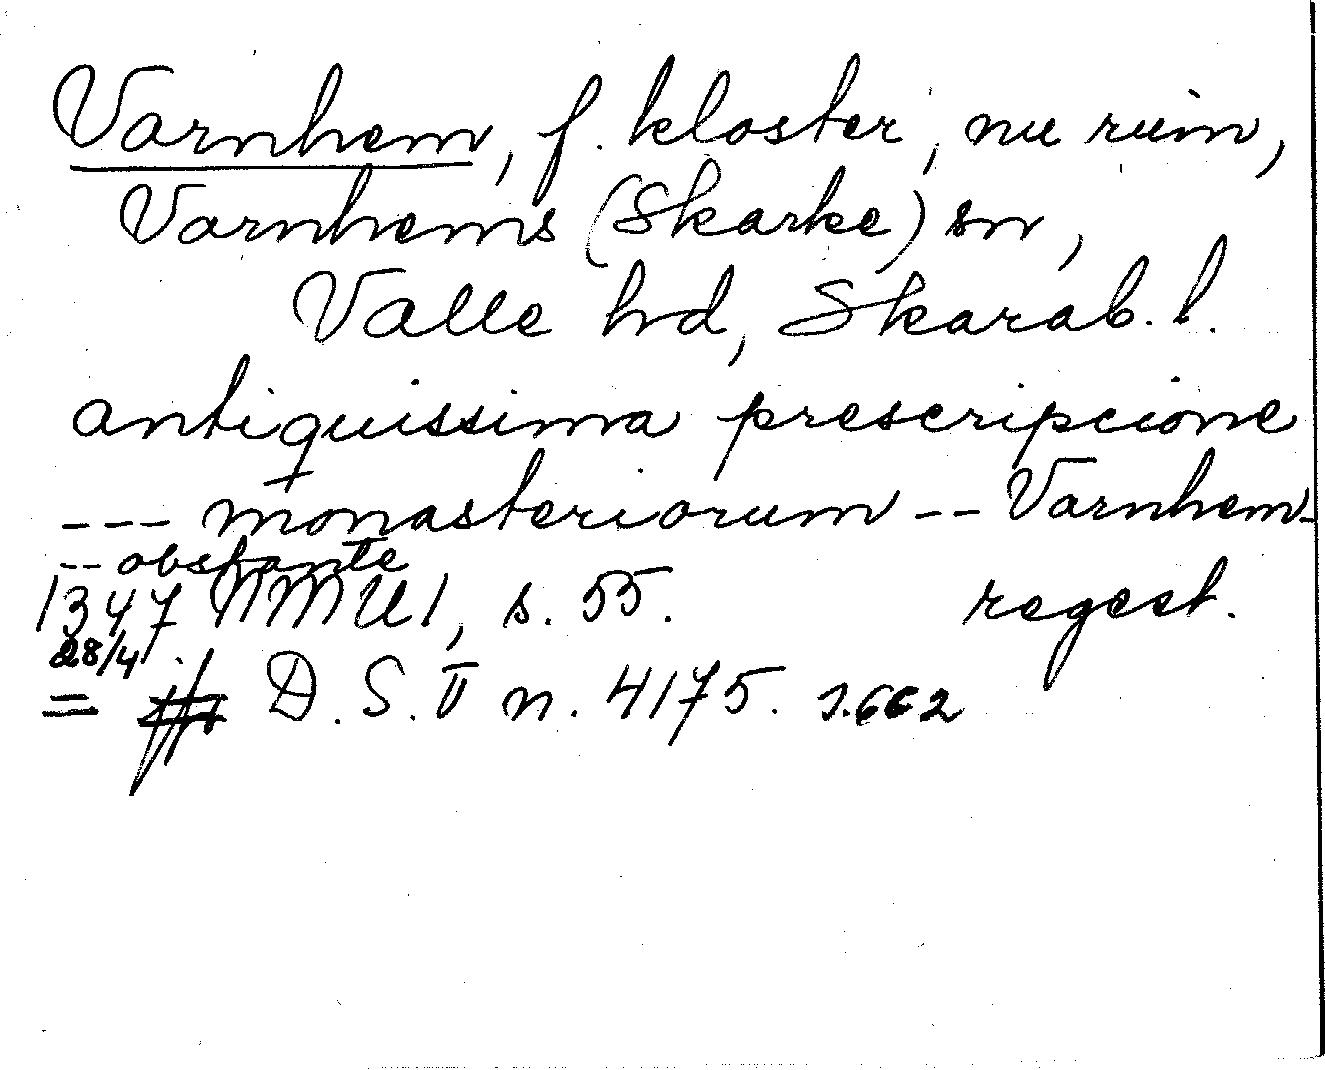 Varnhem, f. kloster, nu ruin,
Varnhems (Skarke) sn,
Valle hd, Skarab. l.
antiquissima prescripcione
--- monasteriorum -- Varnhem-
-- obstante
1347 NMU1, s. 55. regest.
28/4
= D. S. V n. 4175. s. 662